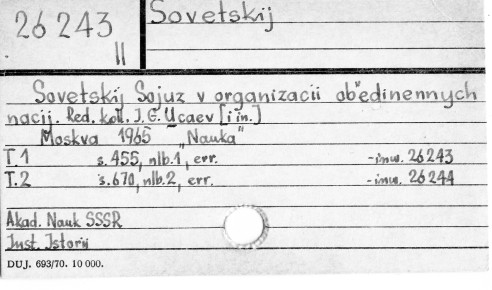 26 243
II
Sovetskij
Sovetskij Sojuz v organizacii ob"edinennych
nacij. Red. koll. I. G. Ucaev [i in.]
Moskva 1965 „Nauka"
T. 1 s. 455, nlb. 1, err. - inw. 26243
T. 2 s. 670, nlb. 2, err. - inw. 26244
Akad. Nauk SSSR
Inst. Istorij
DUJ. 693/70. 10 000.